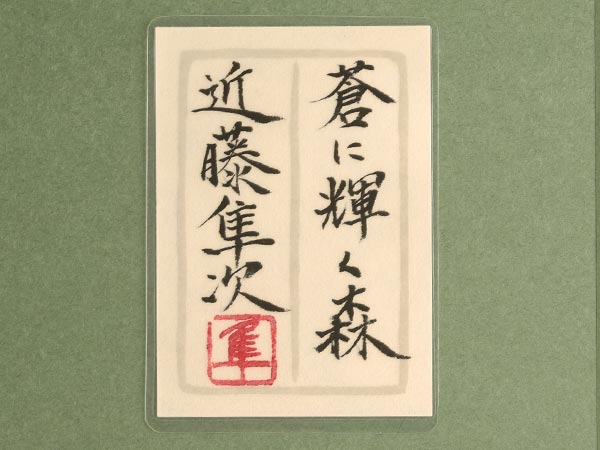 蒼に輝く森
近藤隼次
隼